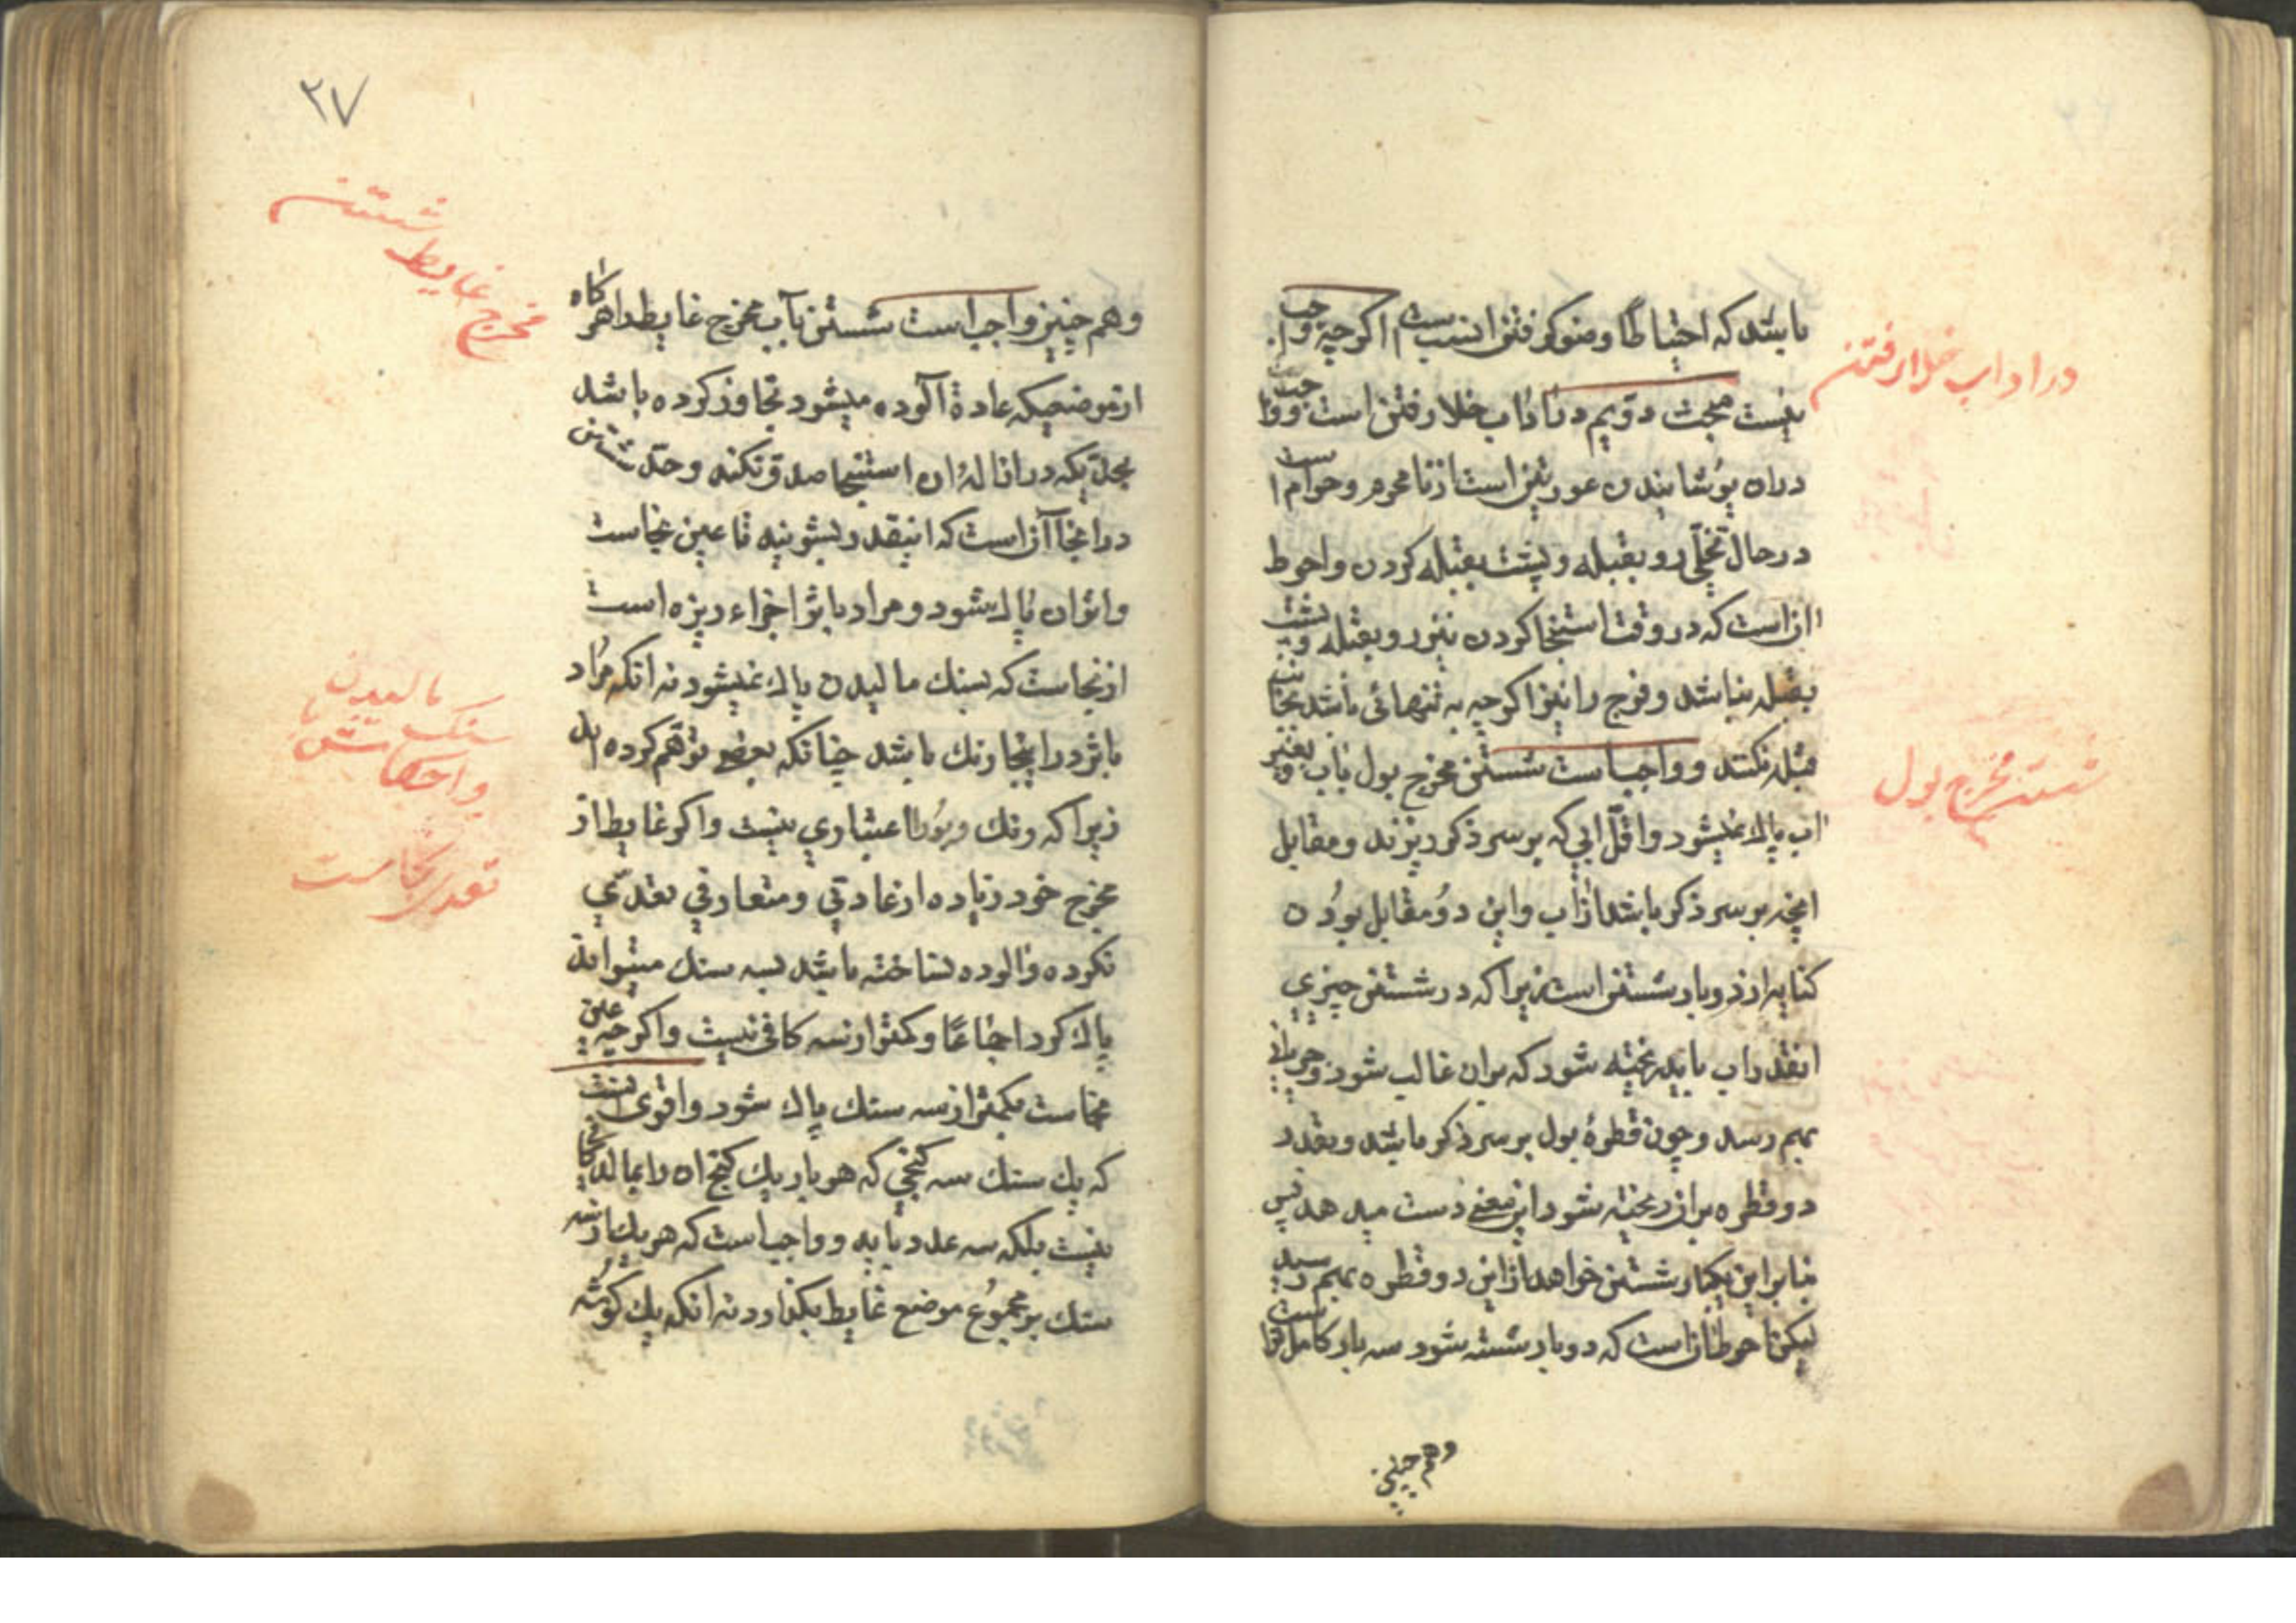 باشد که احتیاطا وضو گرفتن انسب است اگرچه واجب
نیست مبحث دویم در اداب خلا رفتن است و واجب
در ان پوشانیدن عورتین است از نامحرم و حرام است
در حال تخلی رو بقبله و پشت بقبله کردن و احوط
ان است که در وقت استنجا کردن نیز رو بقبله و پشت
بقبله نباشد و فرج را نیز اگرچه به تنهائی باشد بجانب
قبله نکند و واجب است شستن مخرج بول باب و بغیر
اب پاك نمیشود و اقل ابی که بر سر ذکر ریزند و مقابل
انچه بر سر ذکر باشد از اب و این دو مقابل بودن
کنایه از دو بار شستن است زیرا که در شستن چیزی
انقدر اب باید ریخته شود که بران غالب شود و جریانی
بهم رسد و چون قطرهٔ بول بر سر ذکر باشد و بقدر
دو قطره بران ریخته شود این معنی دست میدهد پس
بنا براین یکبار شستن خواهد از این دو قطره بهم رسید
لیکن احوط ان است که دو بار شسته شود سه بار کامل تر است
وهم چنین
در اداب خلا رفتن
شستن مخرج بول
۲۷
وهم چنین واجب است شستن بآب مخرج غایط را هر گاه
از موضعیکه عادة آلوده میشود تجاوز کرده باشد
بحدیکه در ازالهٔ ان استنجا صدق نکند و حد شستن
در اینجا آن است که انقدر بشویند تا عین نجاست
و اثر ان پاك شود و مراد باثر اجزاء ریزه است
از نجاست که بسنك مالیدن پاك نمیشود نه انکه مراد
باثر در اینجا رنك باشد چنانکه بعضی توهم کرده اند
زیرا که رنك و بو را اعتباری نیست و اگر غایط از
مخرج خود زیاده از عادتی و متعارفی تعدی
نکرده و الوده نساخته باشد بسه سنك میتواند
پاك کرد اجماعا و کمتر از سه کافی نیست و اگرچه عین
نجاست بکمتر از سه سنك پاك شود و اقوی انست
که یك سنك سه کنجی که هر بار یك کنج ان را بمالد کافی
نیست بلکه سه عدد باید و واجب است که هر یك از سه
سنك بر مجموع موضع غایط بگذارد نه انکه یك گوشه
شستن
مخرج غایط
مالیدن
سنگ با
واحکامش
تعدی نجاست